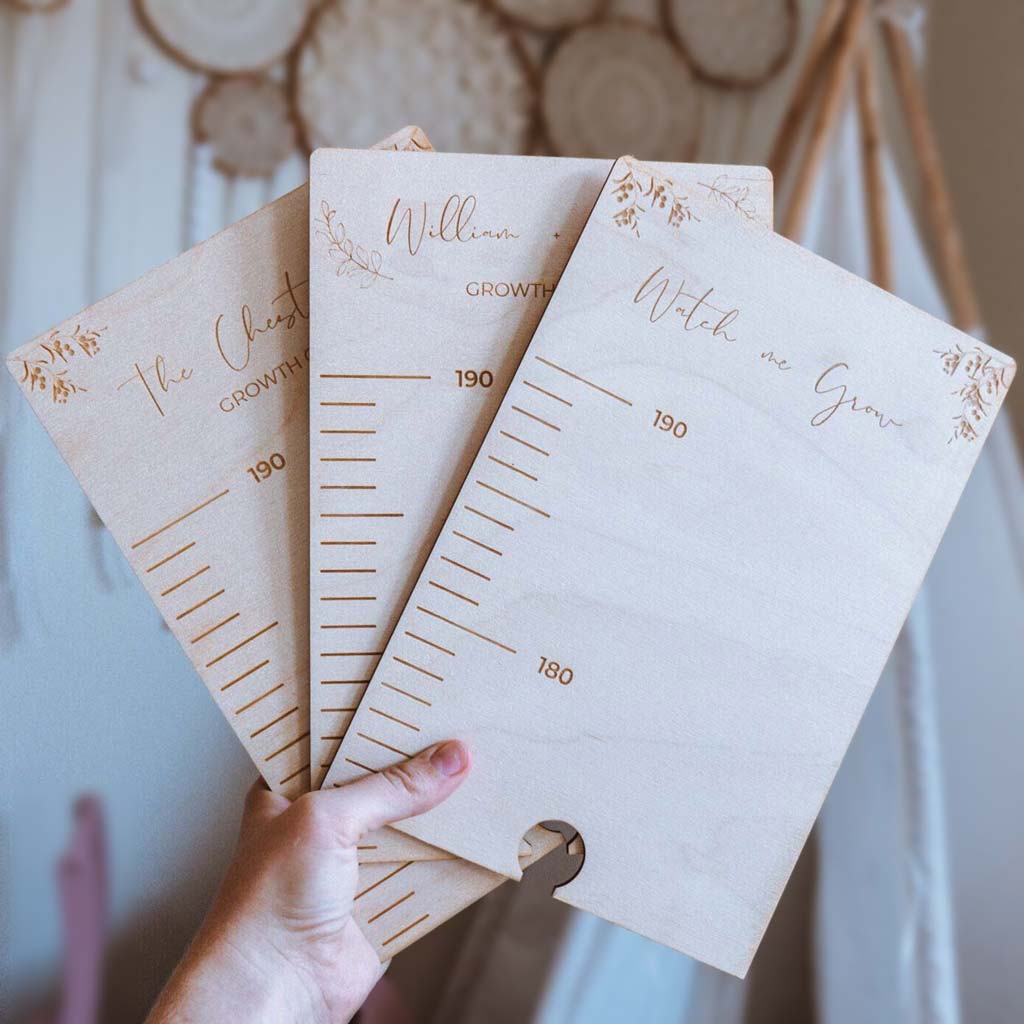 The Chest
GROWTH
190
William +
GROWTH
190
Watch me Grow
190
180